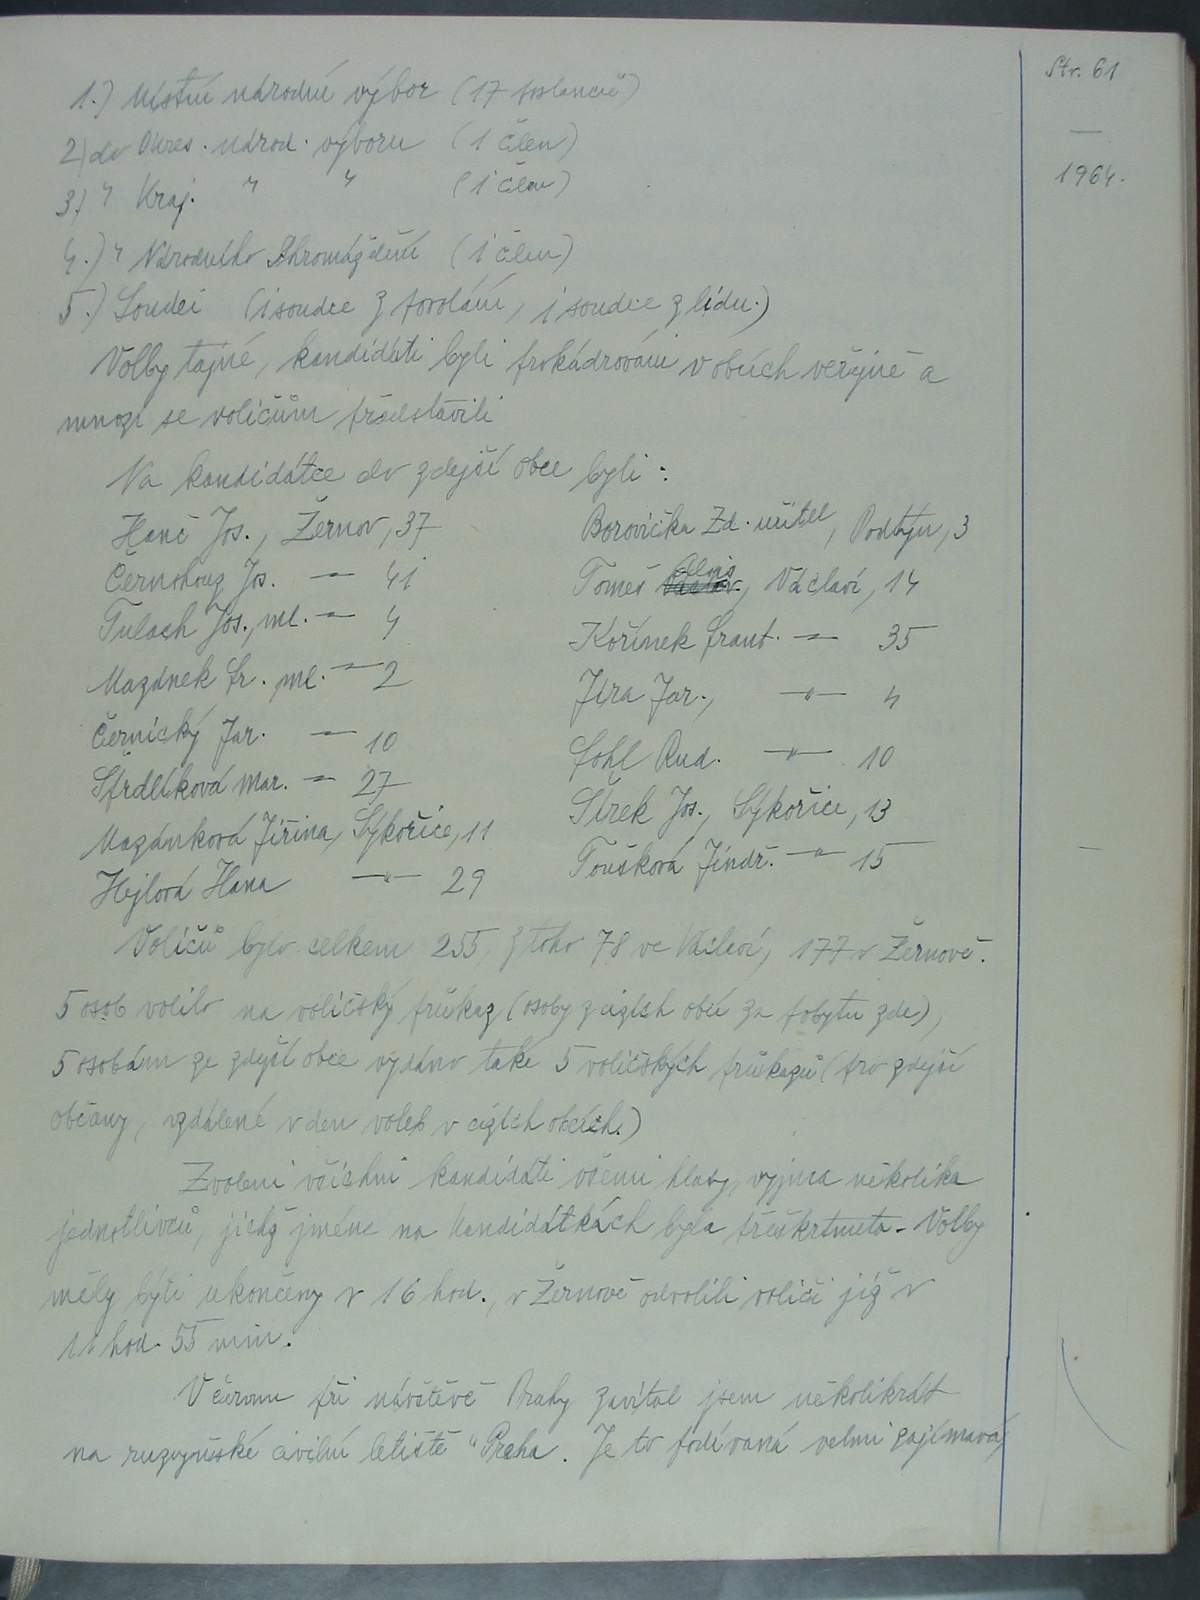 Str. 61
1964.
1.) Místní národní výbor (17 poslanců)
2) do Okres. národ. výboru (1 člen)
3.) " Kraj. " " (1 člen)
4.) " Národního Shromáždění (1 člen)
5.) Soudci (1 soudce z povolání, 1 soudce z lidu.)
Volby tajné, kandidáti byli prokádrováni v obcích veřejně a
mnozí se voličům představili
Na kandidátce do zdejší obce byli:
Hanč Jos., Žernov, 37
Černohouz Jos. — 41
Tulach Jos., ml. — 4
Mazánek fr. ml. — 2
Černický Jar. — 10
Strdlíková Mar. — 27
Mazánková Jiřina, Sýkořice, 11
Hejlová Hana —"— 29
Borovička Zd. učitel, Podtýn, 3
Tomeš Alois, Václaví, 14
Kořínek frant. — 35
Jíra Jar., —"— 4
Sohl Rud. —"— 10
Šírek Jos., Sýkořice, 13
Toušková Jindř. —"— 15
Voličů bylo celkem 255, z toho 78 ve Václaví, 177 v Žernově.
5 osob volilo na voličský průkaz (osoby z cizích obcí za pobytu zde),
5 osobám ze zdejší obce vydáno také 5 voličských průkazů (pro zdejší
občany, vzdálené v den voleb v cizích obcích.)
Zvoleni všichni kandidáti všemi hlasy, vyjma několika
jednotlivců, jichž jména na kandidátkách byla přeškrtnuta. Volby
měly býti ukončeny v 16 hod., v Žernově odvolili voliči již v
11 hod. 55 min.
V červnu při návštěvě Prahy zavítal jsem několikrát
na ruzyňské civilní letiště "Praha. Je to podívaná velmi zajímavá,